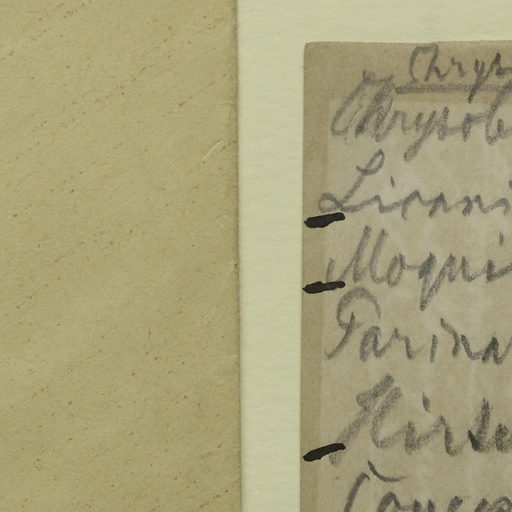 Chrys
Chrysob
Licani
Moqui
Parina
Hirte
Couep